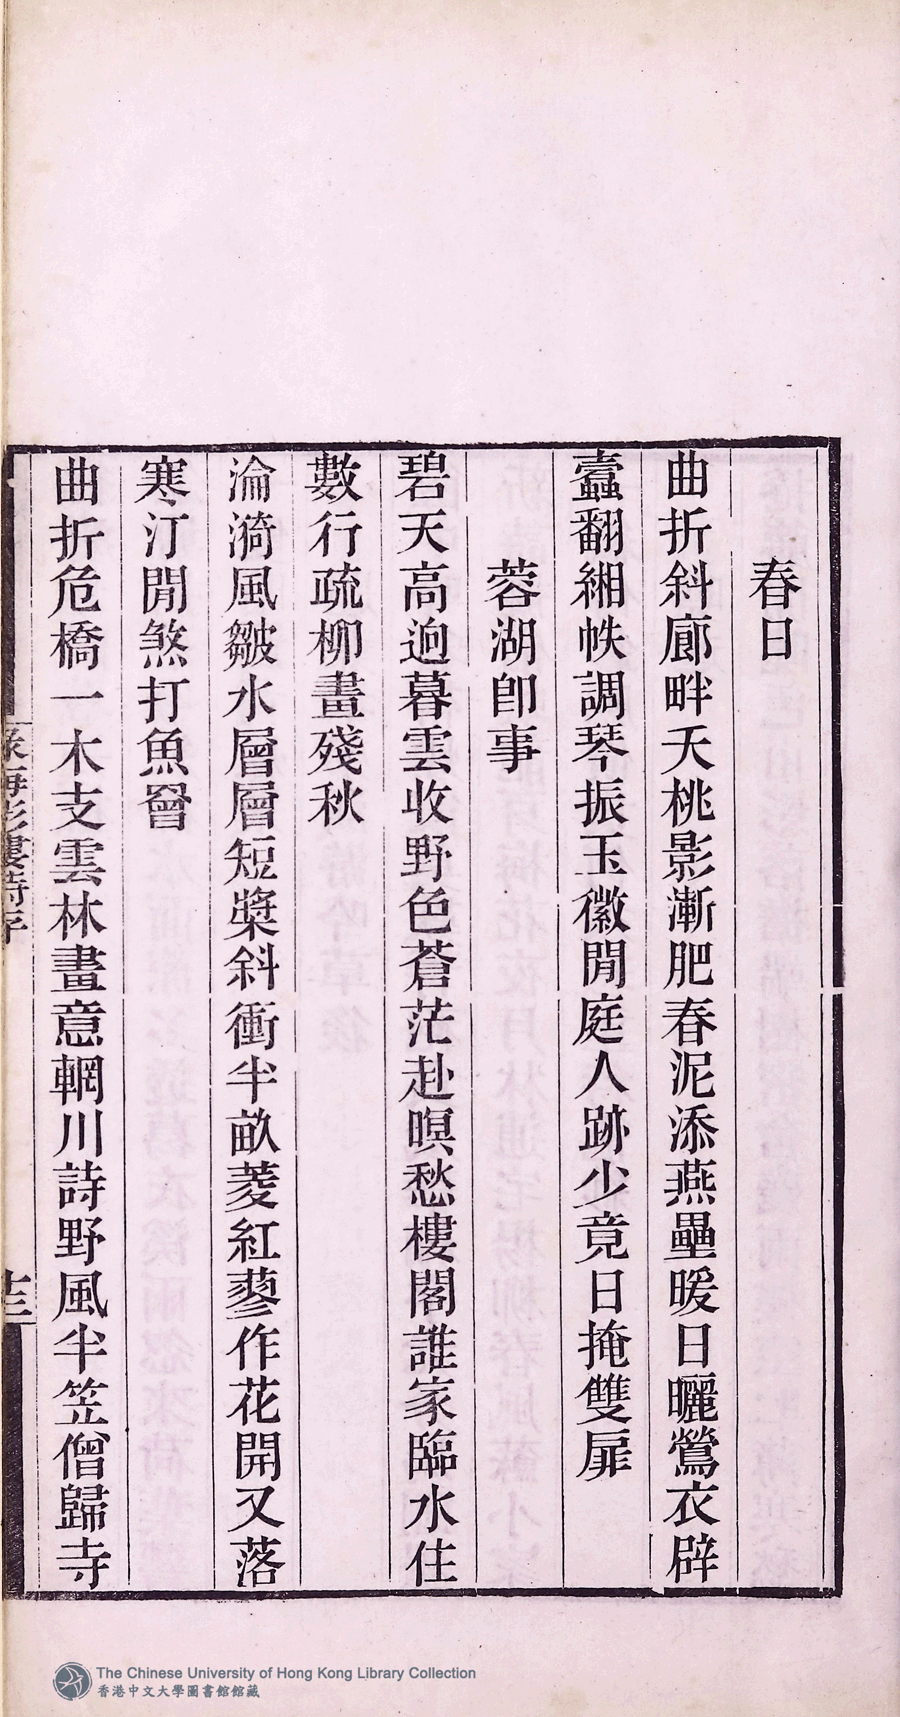 春日
曲折斜廊畔夭桃影漸肥春泥添燕壘暖日曬鶯衣辟
蠹翻緗帙調琴振玉徽閒庭人跡少竟日掩雙扉
蓉湖卽事
碧天高逈暮雲收野色蒼茫赴暝愁樓閣誰家臨水住
數行疏柳畫殘秋
淪漪風皺水層層短槳斜衝半畝菱紅蓼作花開又落
寒汀閒煞打魚罾
曲折危橋一木支雲林畫意輞川詩野風半笠僧歸寺
The Chinese University of Hong Kong Library Collection
香港中文大學圖書館館藏